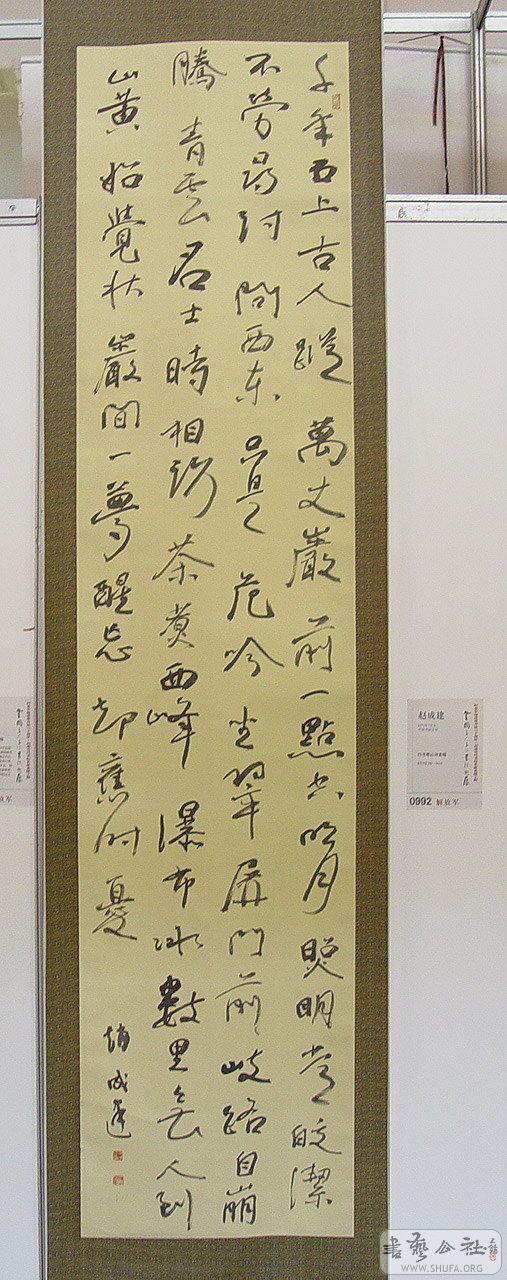 千年石上古人蹤萬丈巖前一點空明月照明常皎潔
不勞尋討問西東只是危吟坐翠屏門前岐路自崩
騰青雲名士時相訪茶煮西峰瀑布冰數里無人到
山黃始覺秋巖間一夢醒忘却舊時憂
趙成建
赵成建
0992 解放军
書藝公社
WWW.SHUFA.ORG